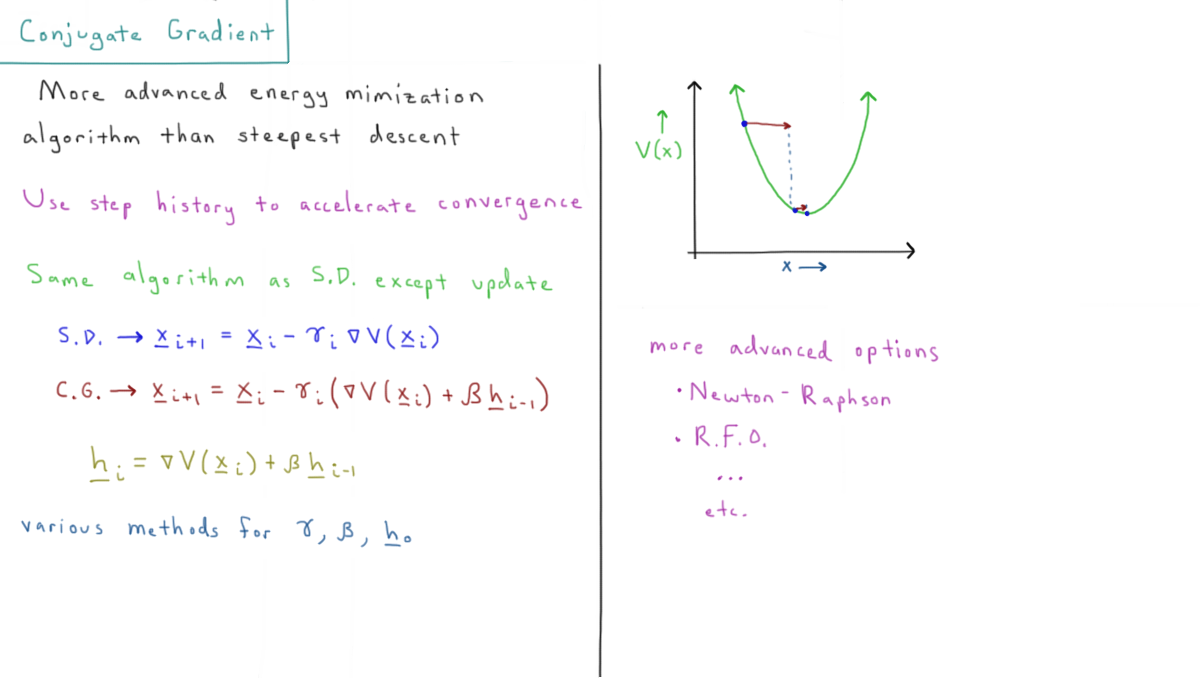 Conjugate Gradient
More advanced energy mimization
algorithm than steepest descent
Use step history to accelerate convergence
Same algorithm as S.D. except update
S.D. → x̲ᵢ₊₁ = x̲ᵢ - γᵢ ∇V(x̲ᵢ)
C.G. → x̲ᵢ₊₁ = x̲ᵢ - γᵢ(∇V(x̲ᵢ) + β h̲ᵢ₋₁)
h̲ᵢ = ∇V(x̲ᵢ) + β h̲ᵢ₋₁
various methods for γ, β, h̲₀
↑
V(x)
x →
more advanced options
• Newton-Raphson
• R.F.O.
...
etc.